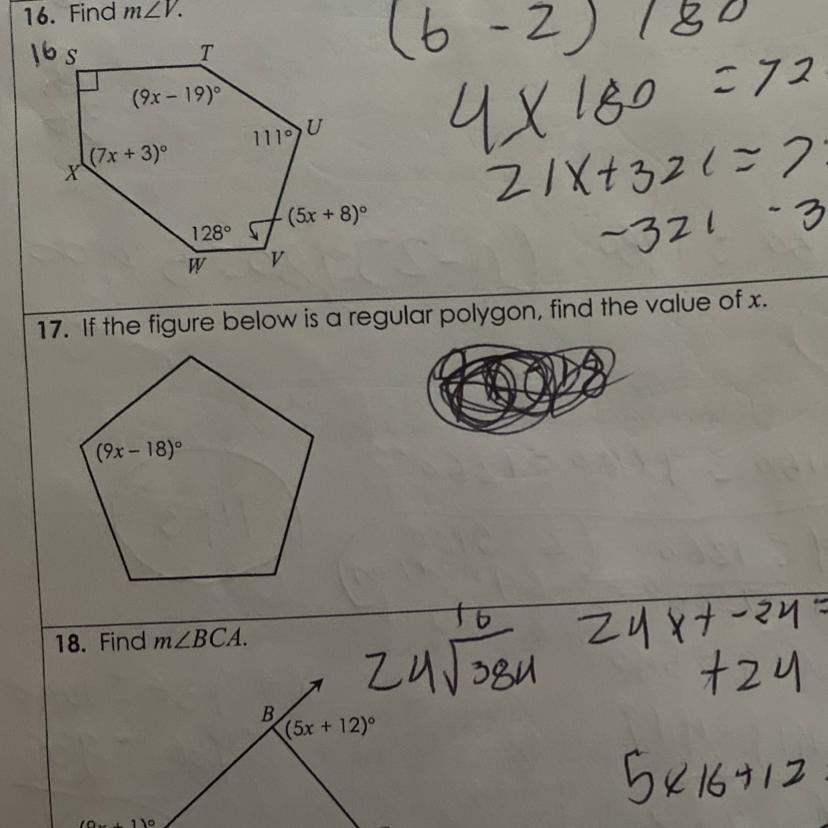 16. Find m∠V.
(6 - 2) 180
16 S
T
(9x – 19)°
4 x 180 = 72
111° U
(7x + 3)°
X
21x+321=7
(5x + 8)°
-321 -3
128°
W
V
17. If the figure below is a regular polygon, find the value of x.
(9x – 18)°
18. Find m∠BCA.
16
24√384
24x+-24=
+24
B
(5x + 12)°
5x16+12